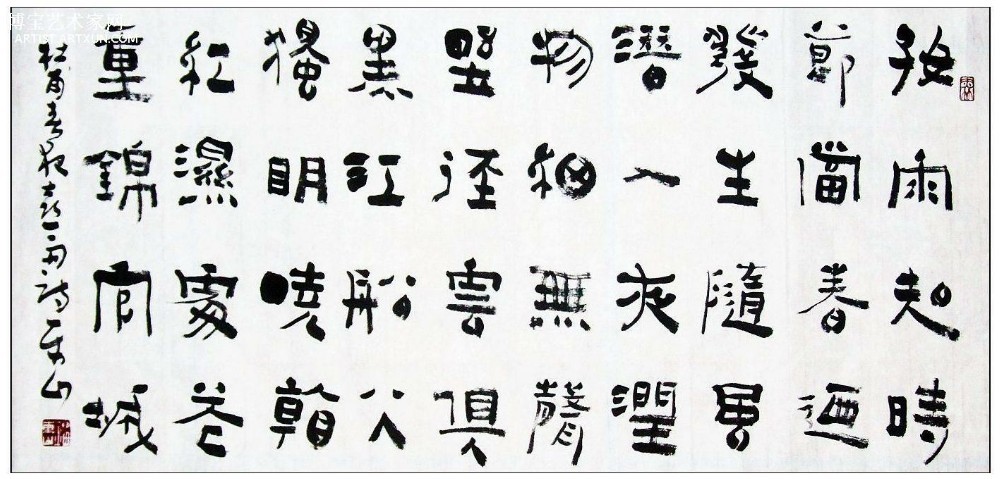 博宝艺术家网
ARTIST.ARTXUN.COM
好雨知時
節當春迺
發生隨風
潛入夜潤
物細無聲
野徑雲俱
黑江船火
獨明曉看
紅濕處花
重錦官城
杜甫春夜喜雨詩